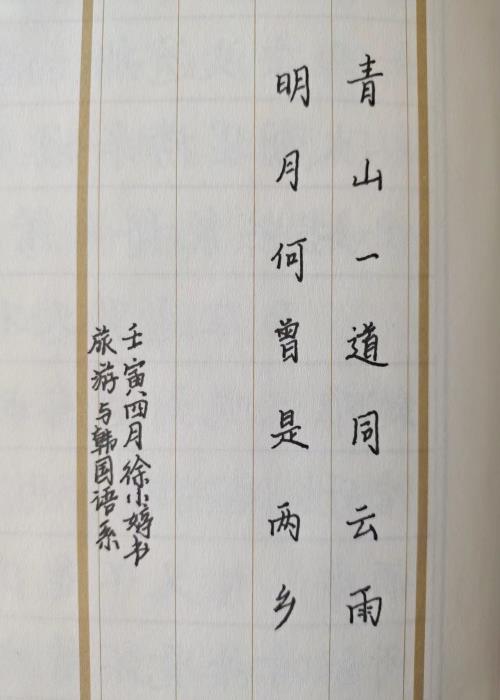 青山一道同云雨
明月何曾是两乡
壬寅四月徐小婷书
旅游与韩国语系